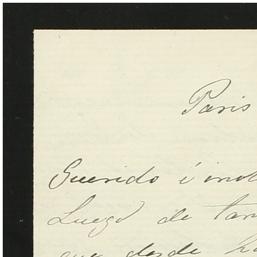 Paris
Querido é inol
Luego de tan
que desde ha